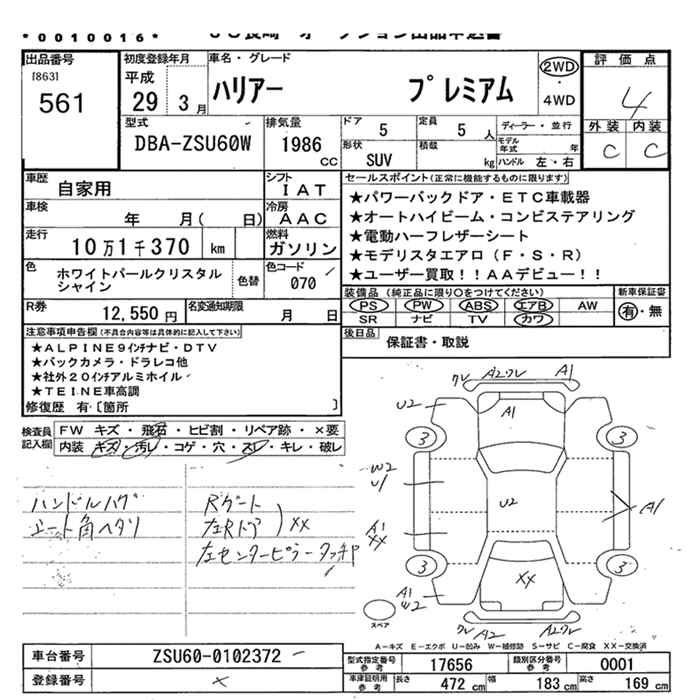 *0010016*
出品番号
[863]
561
初度登録年月
平成
29 3月
車名・グレード
ハリアー プレミアム
2WD
・
4WD
評価点
4
外装 内装
C C
型式
DBA-ZSU60W
排気量
1986
cc
ドア 5
定員 5 人
形状 SUV
積載 kg
ディーラー・並行
モデル年式 年
ハンドル 左・右
車歴 自家用
シフト IAT
車検 年 月( 日)
冷房 AAC
走行 10万1千370 km
燃料 ガソリン
色 ホワイトパールクリスタル
シャイン
色替
色コード 070
R券 12,550円
名変通知期限 月 日
セールスポイント(正常に機能するものに限ります)
★パワーバックドア・ETC車載器
★オートハイビーム・コンビステアリング
★電動ハーフレザーシート
★モデリスタエアロ(F・S・R)
★ユーザー買取!!AAデビュー!!
装備品(純正品に限り○をつけてください)
新車保証書
PS PW ABS エアB AW
SR ナビ TV カワ
有・無
後日品 保証書・取説
注意事項申告欄(不具合内容等は具体的に記入して下さい)
★ALPINE9インチナビ・DTV
★バックカメラ・ドラレコ他
★社外20インチアルミホイル
★TEINE車高調
修復歴 有〔箇所 〕
検査員
記入欄
FW キズ・飛石・ヒビ割・リペア跡・×要
内装 キズ・汚レ・コゲ・穴・スレ・キレ・破レ
ハンドルハゲ
シート角ヘタリ
Rゲート
左Rドア
XX
左センターピラータッチP
ワレ A2ワレ A1
U2 A1
3 3
W2
U1
U2
A1
A1
XX
3 3
XX
A1
W2
スペア
ワレ A2 A2ワレ
A-キズ E-エクボ U-凹み W-補修跡 S-サビ C-腐食 XX-交換済
車台番号 ZSU60-0102372
登録番号
型式指定番号
参考
17656
類別区分番号
参考
0001
車庫証明用
参考
長さ 472 cm 幅 183 cm 高さ 169 cm